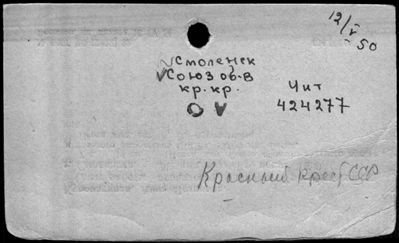 12/V 50
Смоленск
Союз об-в
кр. кр.
Чит
424277
Красный крест СССР